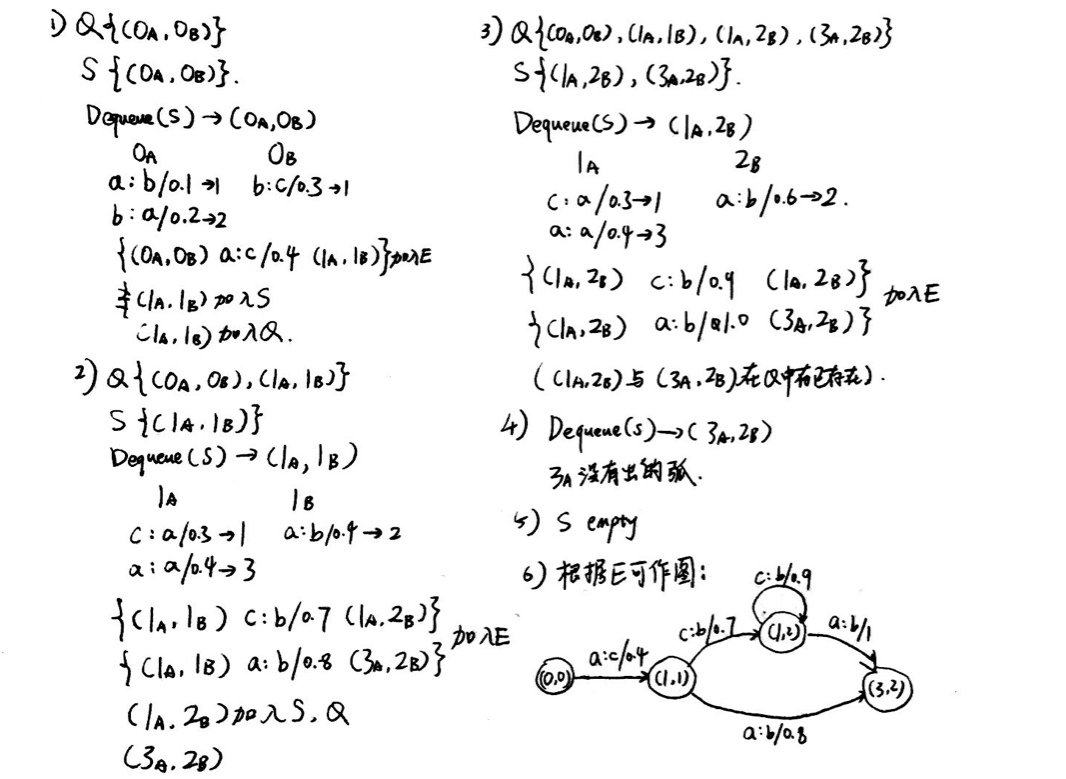 1) Q{(0A, 0B)}
S{(0A, 0B)}.
Dequeue(S) → (0A, 0B)
0A 0B
a:b/0.1→1 b:c/0.3→1
b:a/0.2→2
{(0A, 0B) a:c/0.4 (1A, 1B)}加入E
(1A, 1B)加入S
(1A, 1B)加入Q.
2) Q{(0A, 0B), (1A, 1B)}
S{(1A, 1B)}
Dequeue(S) → (1A, 1B)
1A 1B
c:a/0.3→1 a:b/0.4→2
a:a/0.4→3
{(1A, 1B) c:b/0.7 (1A, 2B)}
{(1A, 1B) a:b/0.8 (3A, 2B)}
加入E
(1A, 2B)加入S, Q
(3A, 2B)
3) Q{(0A, 0B), (1A, 1B), (1A, 2B), (3A, 2B)}
S{(1A, 2B), (3A, 2B)}.
Dequeue(S) → (1A, 2B)
1A 2B
c:a/0.3→1 a:b/0.6→2.
a:a/0.4→3
{(1A, 2B) c:b/0.9 (1A, 2B)}
{(1A, 2B) a:b/1.0 (3A, 2B)}
加入E
((1A, 2B)与(3A, 2B)在Q中已存在).
4) Dequeue(S) → (3A, 2B)
3A没有出的弧.
5) S empty
6) 根据E可作图:
c:b/0.9
c:b/0.7 (1,2) a:b/1
(0,0) a:c/0.4 (1,1) (3,2)
a:b/0.8